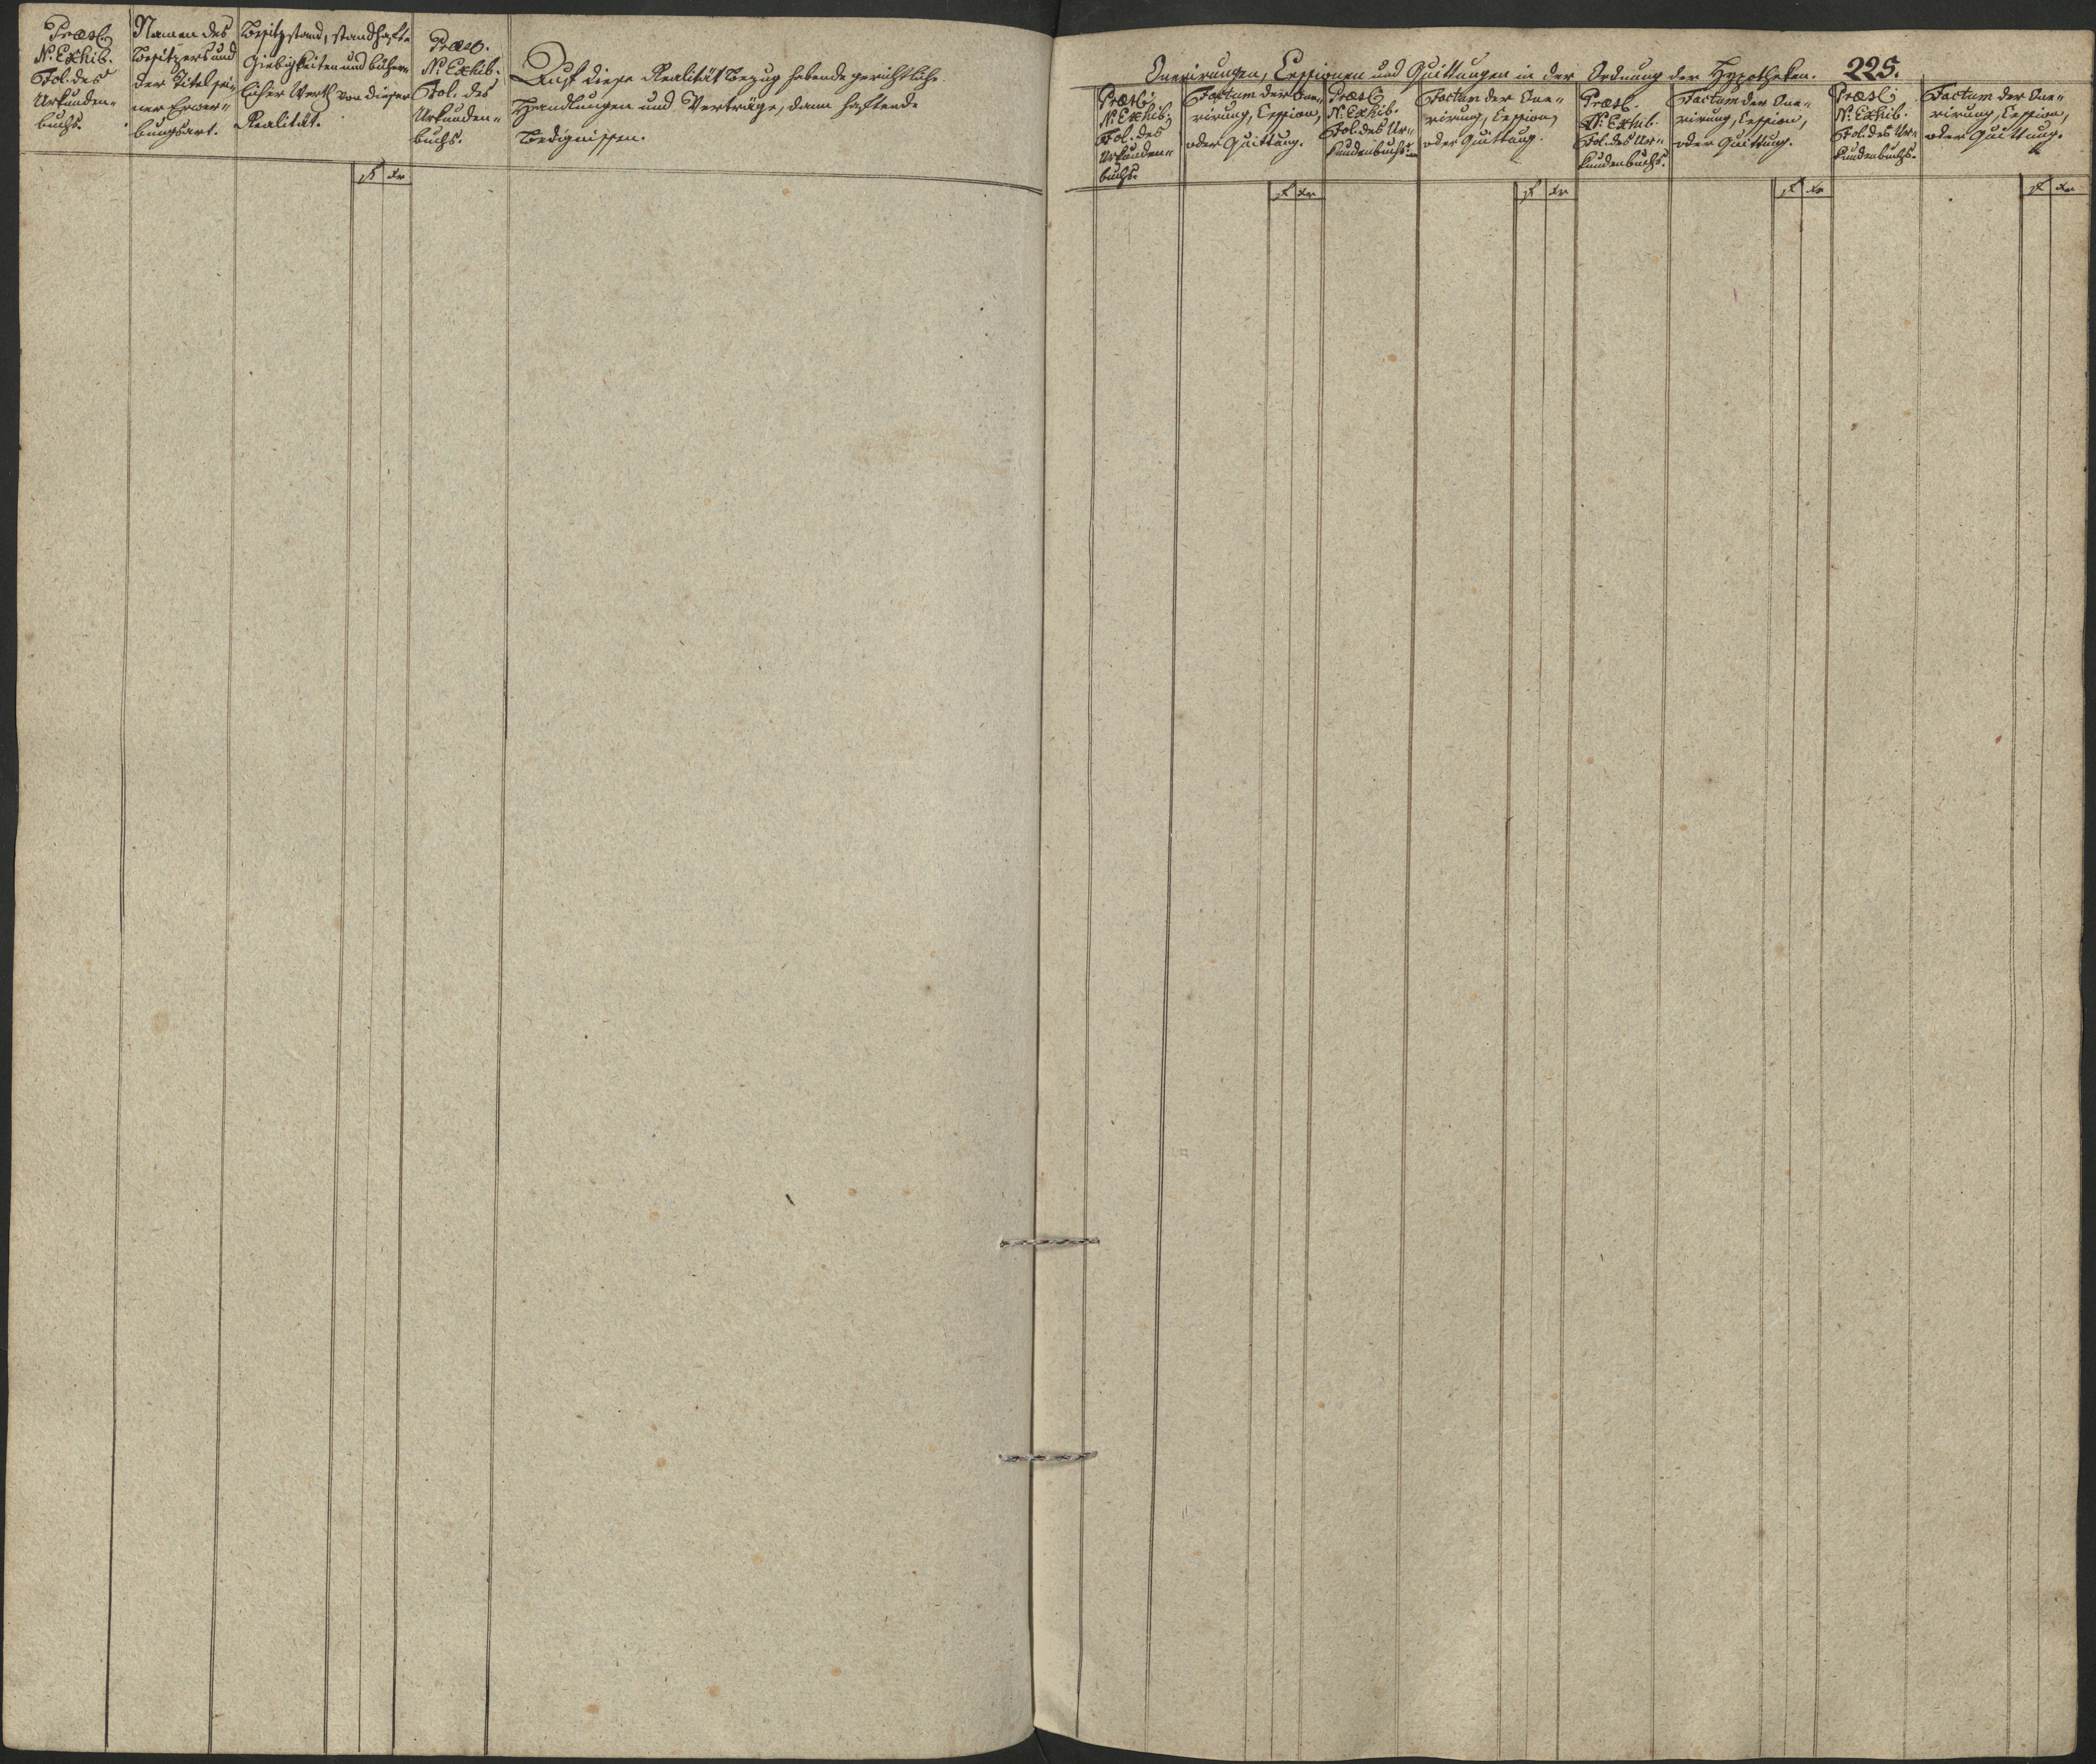 Præs.
N: Exhib.
Fol: des
Urkunden-
buchs.
Namen des
Besitzers und
der Titel sei-
ner Erwer-
bungsart.
Besitzstand, standhafte
Giebigkeiten und bücher-
licher Werth von dieser
Realität.
f xr
Præs.
N: Exhib.
Fol. des
Urkunden-
buchs.
Auf diese Realität Bezug habende gerichtliche
Handlungen und Verträge, dann haftende
Bedignissen.
Onerirungen, Cessionen und Quittungen in der Ordnung der Hypotheken.
225.
Præs.
N: Exhib.
Fol. des
Urkunden-
buchs.
Factum der One-
rirung, Cession,
oder Quittung.
f xr
Præs.
N: Exhib.
Fol. des Ur-
kundenbuchs.
Factum der One-
rirung, Cession,
oder Quittung.
f xr
Præs.
N: Exhib.
Fol. des Ur-
kundenbuchs.
Factum der One-
rirung, Cession,
oder Quittung.
f xr
Præs.
N: Exhib.
Fol. des Ur-
kundenbuchs.
Factum der One-
rirung, Cession,
oder Quittung.
f xr